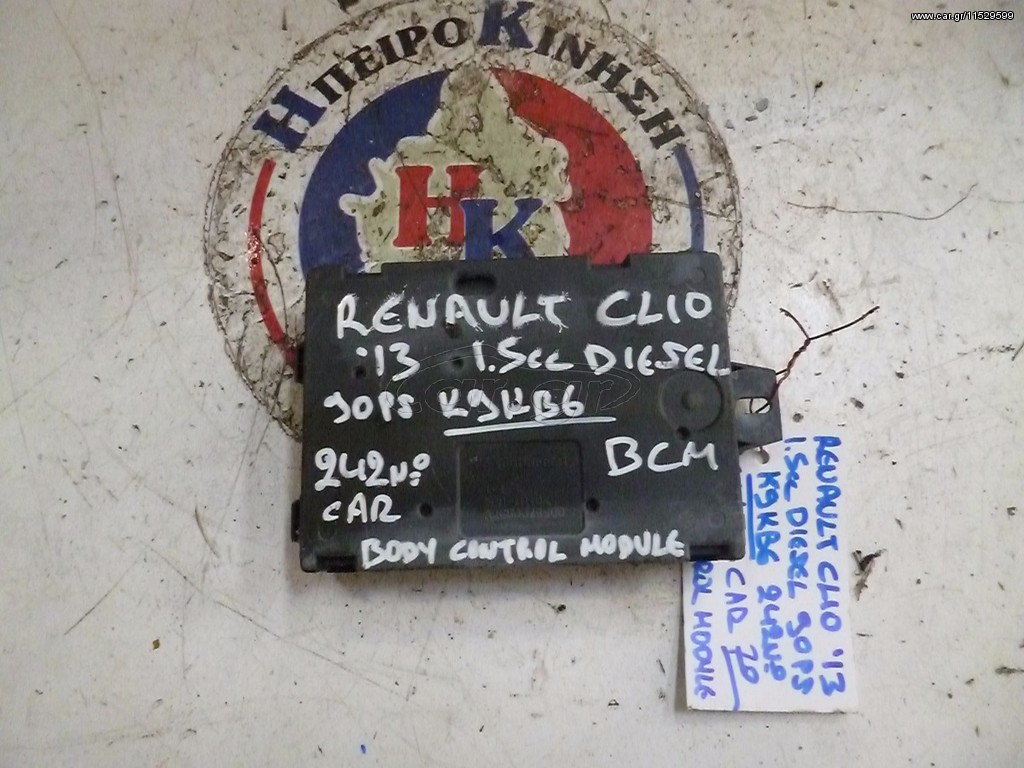 www.car.gr/11529599
ΗΠΕΙΡΟΚΙΝΗΣΗ
ΗΚ
RENAULT CLIO
'13 1.5cc DIESEL
90PS K9KB6
242Nο BCM
CAR
BODY CONTROL MODULE
RENAULT CLIO '13
1.5cc DIESEL 90PS
K9KB6 242Nο
CAR 70
MODULE